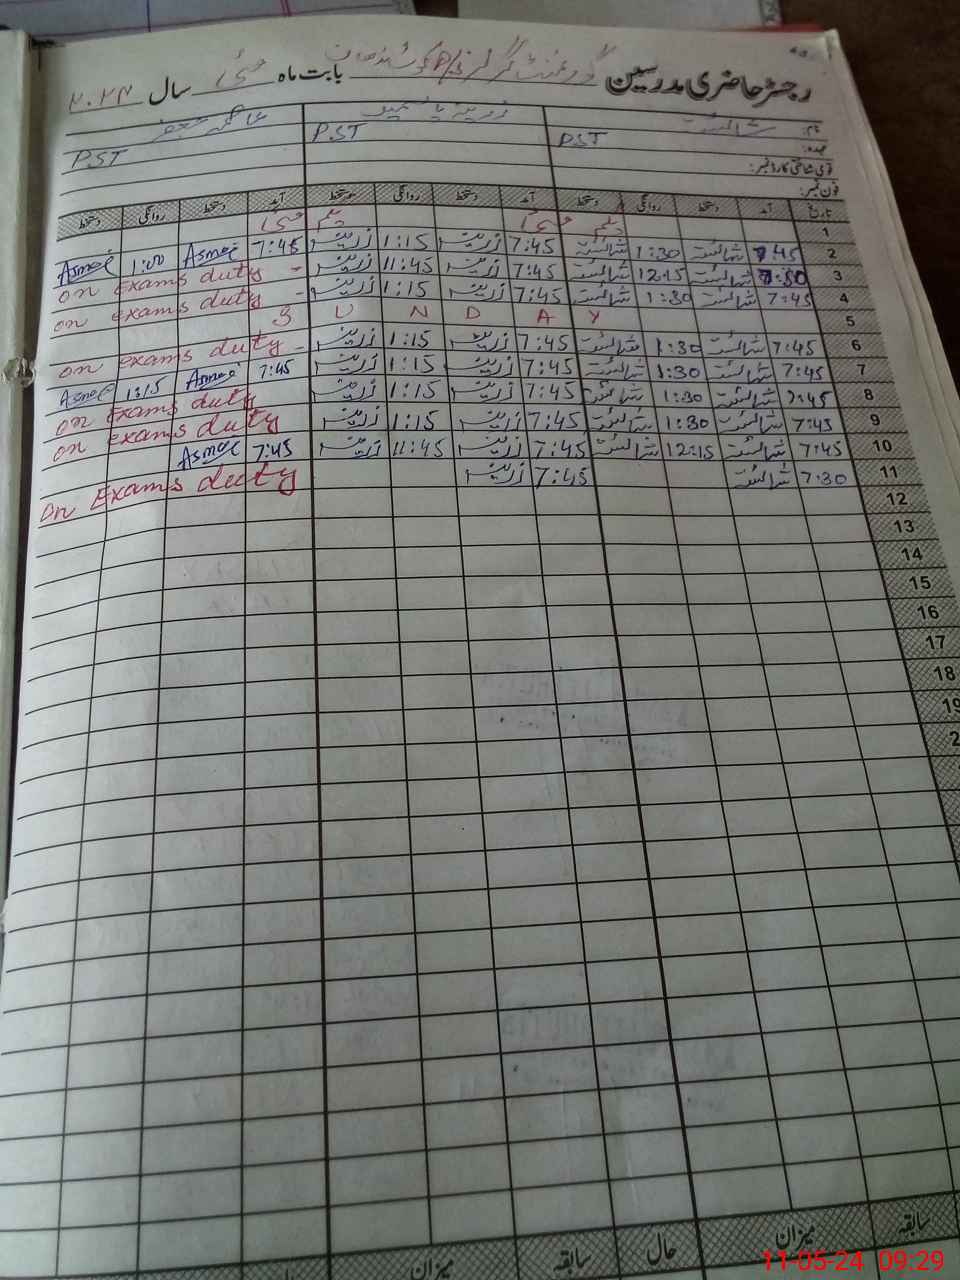 رجسٹر حاضری مدرسین گورنمنٹ گرلز بابت ماہ مئی سال ۲۰۲۴
نام: شائستہ زرینہ یاسمین عاصمہ جعفر
عہدہ: PST PST PST
قومی شناختی کارڈ نمبر:
فون نمبر:
تاریخ آمد دستخط روانگی دستخط آمد دستخط روانگی دستخط آمد دستخط روانگی دستخط
1 یکم مئی یکم مئی
2 7:45 شائستہ 1:30 شائستہ 7:45 زرینہ 1:15 زرینہ 7:45 Asmae 1:00 Asmae
3 7:50 شائستہ 12:15 شائستہ 7:45 زرینہ 11:45 زرینہ - on exams duty
4 7:45 شائستہ 1:30 شائستہ 7:45 زرینہ 1:15 زرینہ - on exams duty
5 S U N D A Y
6 7:45 شائستہ 1:30 شائستہ 7:45 زرینہ 1:15 زرینہ - on exams duty
7 7:45 شائستہ 1:30 شائستہ 7:45 زرینہ 1:15 زرینہ 7:45 Asmae 1:15 Asmae
8 7:45 شائستہ 1:30 شائستہ 7:45 زرینہ 1:15 زرینہ on exams duty
9 7:45 شائستہ 1:30 شائستہ 7:45 زرینہ 1:15 زرینہ on exams duty
10 7:45 شائستہ 12:15 شائستہ 7:45 زرینہ 11:45 زرینہ 7:45 Asmae
11 7:30 شائستہ 7:45 زرینہ on Exams duty
12
13
14
15
16
17
18
19
2
سابقہ میزان حال سابقہ میزان
11-05-24 09:29